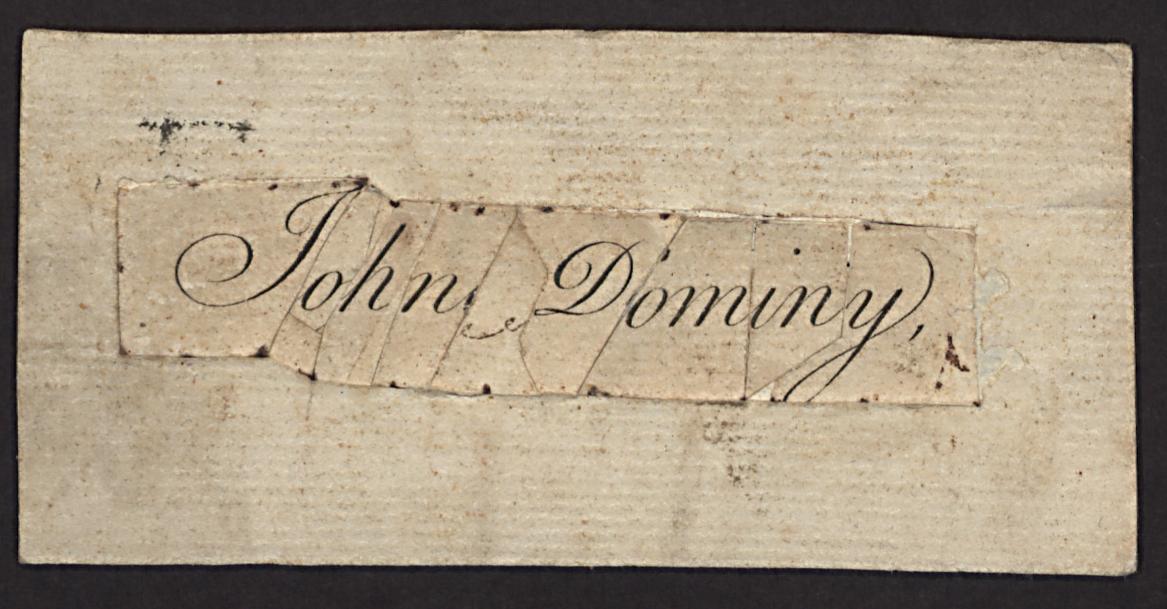 John Dominy,